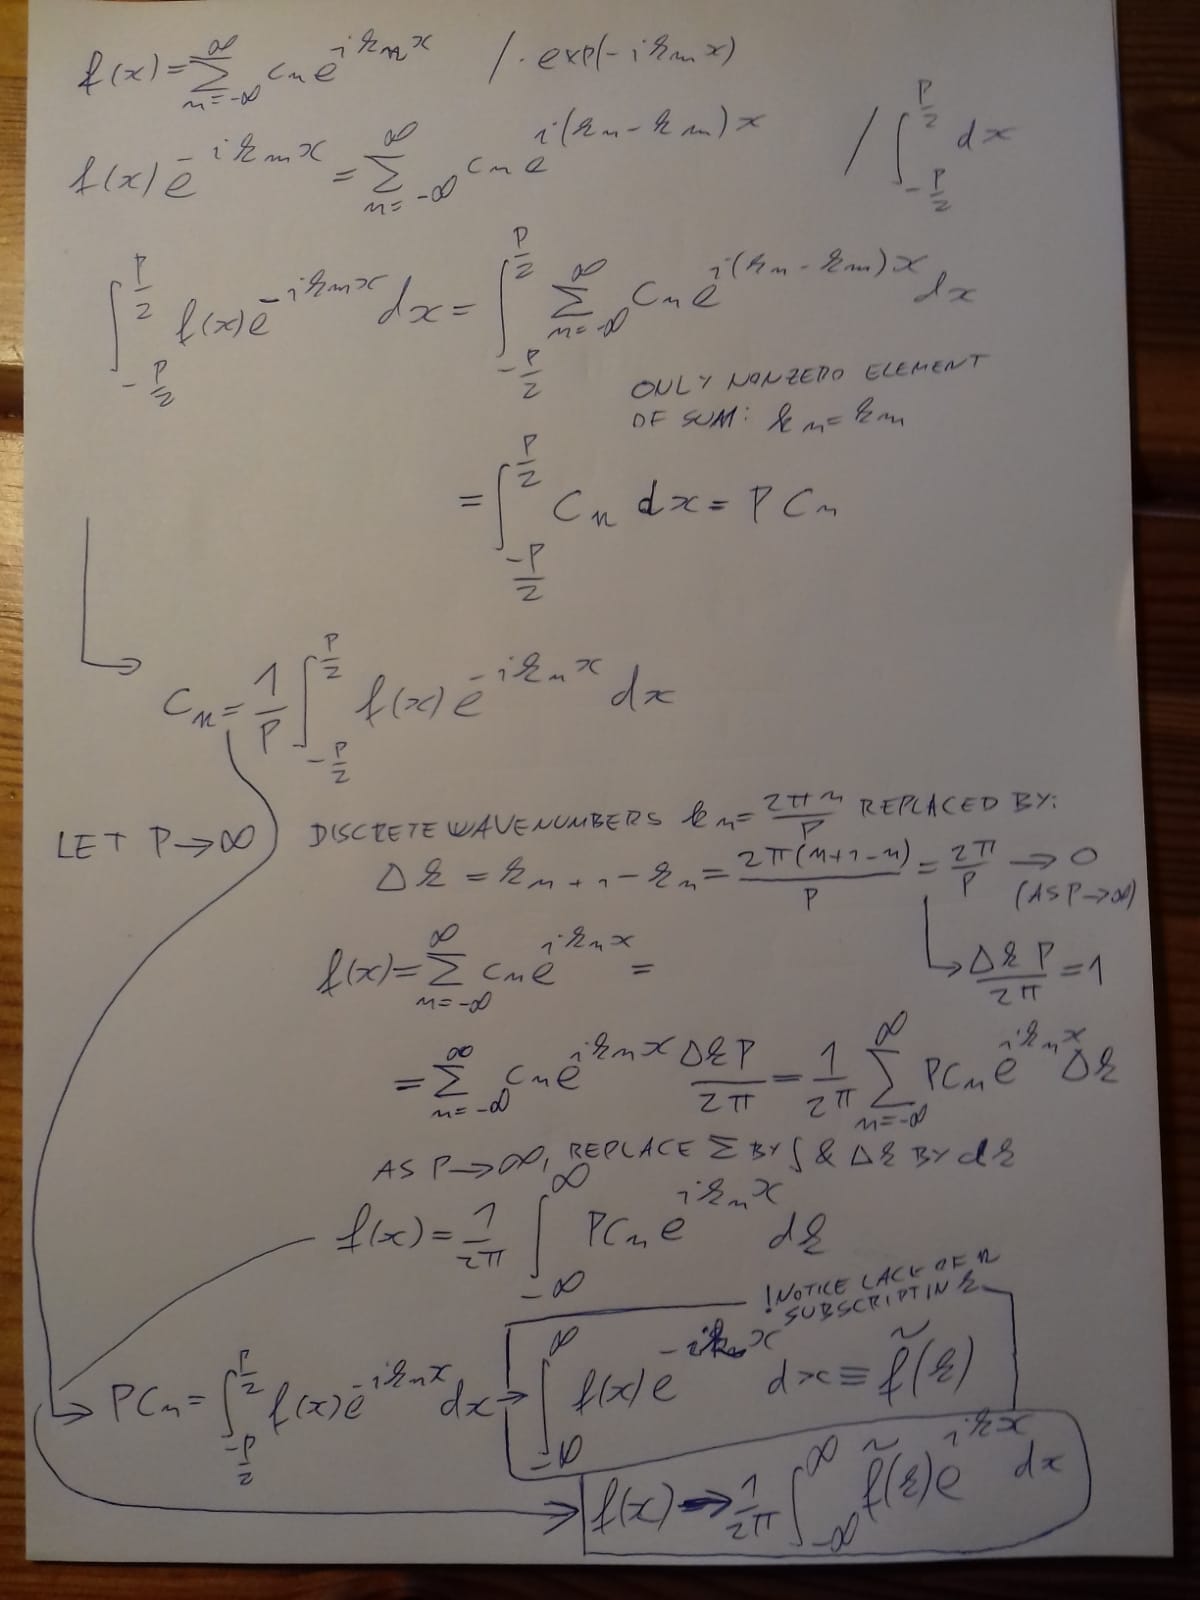 f(x) = Σ_{n=-∞}^{∞} c_n e^{i k_n x} / · exp(-i k_m x)
f(x) e^{-i k_m x} = Σ_{n=-∞}^{∞} c_n e^{i(k_n - k_m)x} / ∫_{-P/2}^{P/2} dx
∫_{-P/2}^{P/2} f(x) e^{-i k_m x} dx = ∫_{-P/2}^{P/2} Σ_{n=-∞}^{∞} c_n e^{i(k_n - k_m)x} dx
ONLY NONZERO ELEMENT
OF SUM: k_n = k_m
= ∫_{-P/2}^{P/2} C_n dx = P C_n
C_n = 1/P ∫_{-P/2}^{P/2} f(x) e^{-i k_n x} dx
LET P → ∞ DISCRETE WAVENUMBERS k_n = 2πn/P REPLACED BY:
Δk = k_{n+1} - k_n = 2π(n+1-n)/P = 2π/P → 0
(AS P→∞)
f(x) = Σ_{n=-∞}^{∞} c_n e^{i k_n x} =
Δk P/2π = 1
= Σ_{n=-∞}^{∞} c_n e^{i k_n x} Δk P/2π = 1/2π Σ_{n=-∞}^{∞} P C_n e^{i k_n x} Δk
AS P → ∞, REPLACE Σ BY ∫ & Δk BY dk
f(x) = 1/2π ∫_{-∞}^{∞} P C_n e^{i k_n x} dk
! NOTICE LACK OF n
SUBSCRIPT IN k
P C_n = ∫_{-P/2}^{P/2} f(x) e^{-i k_n x} dx → ∫_{-∞}^{∞} f(x) e^{-ikx} dx ≡ f̃(k)
f(x) → 1/2π ∫_{-∞}^{∞} f̃(k) e^{ikx} dx